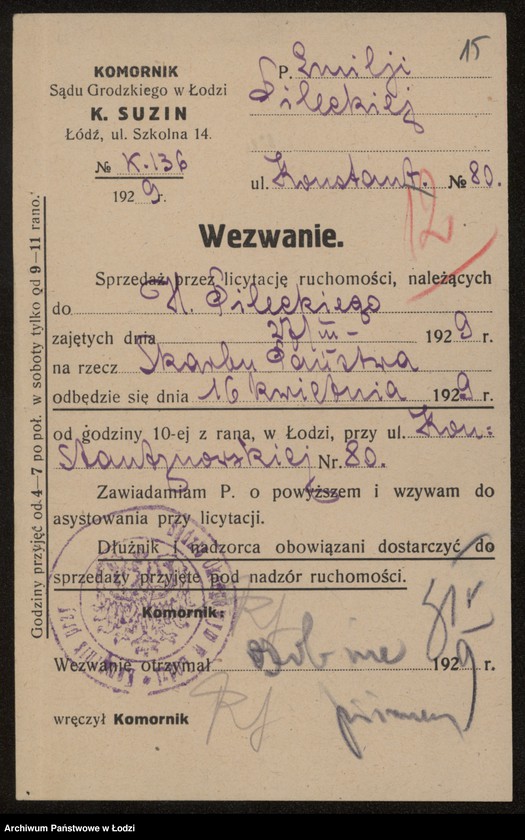 15
KOMORNIK
Sądu Grodzkiego w Łodzi
K. SUZIN
Łódź, ul. Szkolna 14.
№ K.136
1929 r.
P. Emilji
Pileckiej
ul. Konstant. № 80.
12
Wezwanie.
Sprzedaż przez licytację ruchomości, należących
do H. Pileckiego
zajętych dnia 27/III 1929 r.
na rzecz Skarbu Państwa
odbędzie się dnia 16 kwietnia 1929 r.
od godziny 10-ej z rana, w Łodzi, przy ul. Kon-
stantynowskiej Nr. 80.
Zawiadamiam P. o powyższem i wzywam do
asystowania przy licytacji.
Dłużnik i nadzorca obowiązani dostarczyć do
sprzedaży przyjęte pod nadzór ruchomości.
Komornik:
Wezwanie otrzymał 1929 r.
wręczył Komornik
Godziny przyjęć od 4—7 po poł. w soboty tylko od 9—11 rano.
Archiwum Państwowe w Łodzi